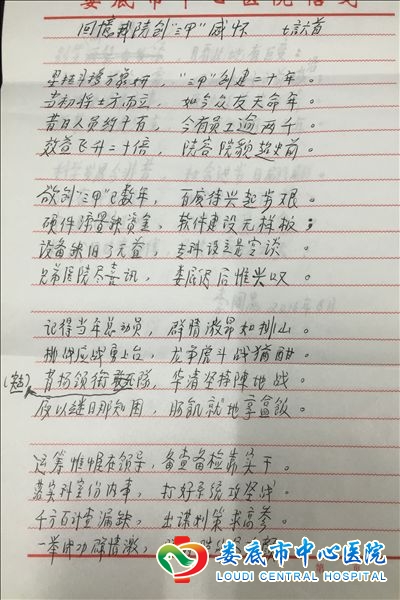 娄底市中心医院信笺
回忆我院创“三甲”感怀 七言六首
“三甲”创建二十年。
当初将士方而立, 如今众友天命年。
昔日人员约千百, 今有员工逾两千。
效益飞升二十倍, 院容院貌超出前。
欲创“三甲”已数年, 百废待兴起步艰。
硬件添置缺资金, 软件建设无样板;
设备缺旧了无益, 专科设定是空谈。
兄弟医院尽喜讯, 娄底居后惟兴叹。
记得当年总动员, 群情激昂如排山。
挑战应战要上台, 龙争虎斗战犹酣。
领衔敢死队, 华清坚持阵地战。
夜以继日那知困, 肠饥就地享盒饭。
运筹帷幄在领导, 备查备检靠实干。
落实科室份内事, 打好系统攻坚战。
千方百计查漏缺, 出谋划策求高参。
一举成功群情激,
娄底市中心医院
LOUDI CENTRAL HOSPITAL